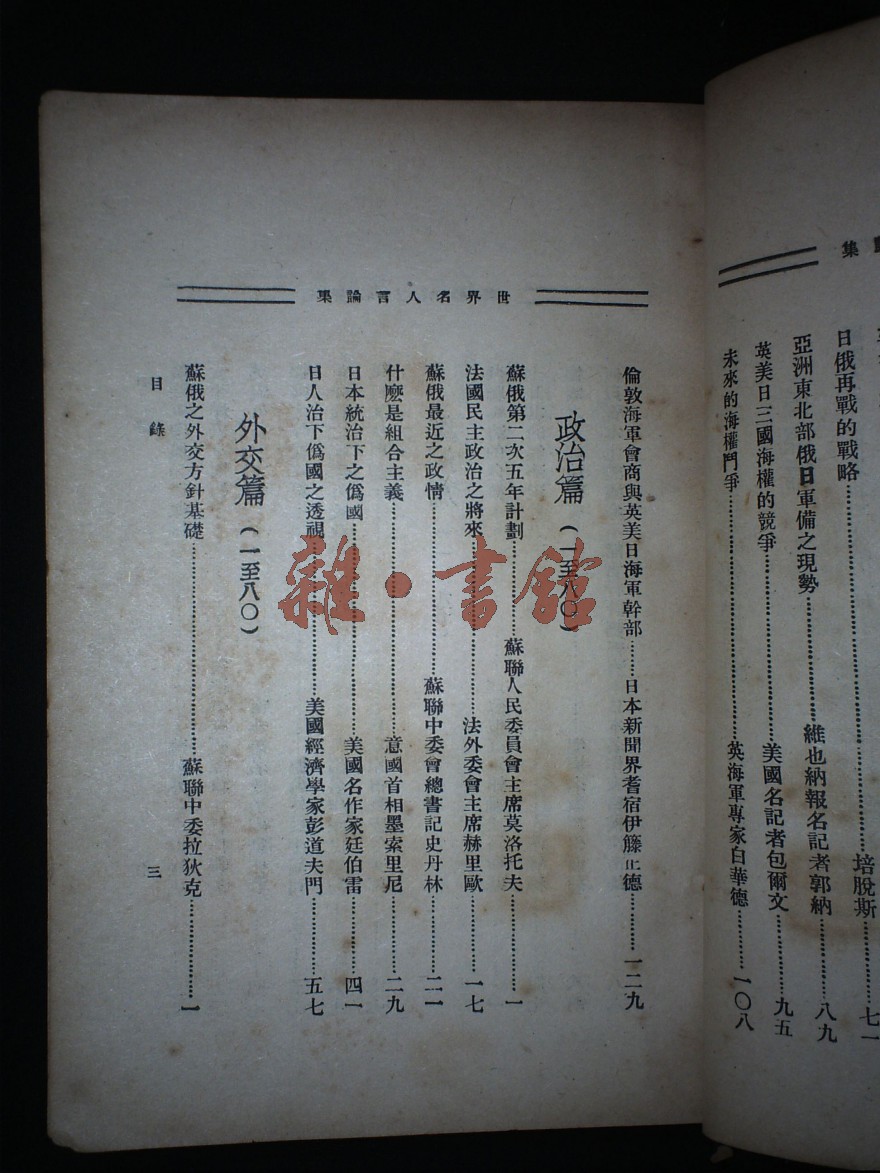 集
日俄再戰的戰略……培脫斯……七一
亞洲東北部俄日軍備之現勢……維也納報名記者郭納……八九
英美日三國海權的競爭……美國名記者包爾文……九五
未來的海權鬥爭……英海軍專家白華德……一〇八
世界名人言論集
倫敦海軍會商與英美日海軍幹部……日本新聞界耆宿伊籐正德……一二九
政治篇(一至八〇)
蘇俄第二次五年計劃……蘇聯人民委員會主席莫洛托夫……一
法國民主政治之將來……法外委會主席赫里歐……一七
蘇俄最近之政情……蘇聯中委會總書記史丹林……二一
什麼是組合主義……意國首相墨索里尼……二九
日本統治下之僞國……美國名作家廷伯雷……四一
日人治下僞國之透視……美國經濟學家彭道夫門……五七
外交篇(一至八〇)
蘇俄之外交方針基礎……蘇聯中委拉狄克……一
目錄
三
雜·書館